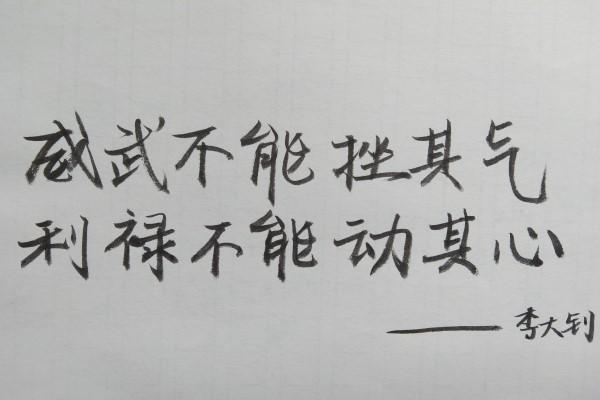 威武不能挫其气
利禄不能动其心
——李大钊